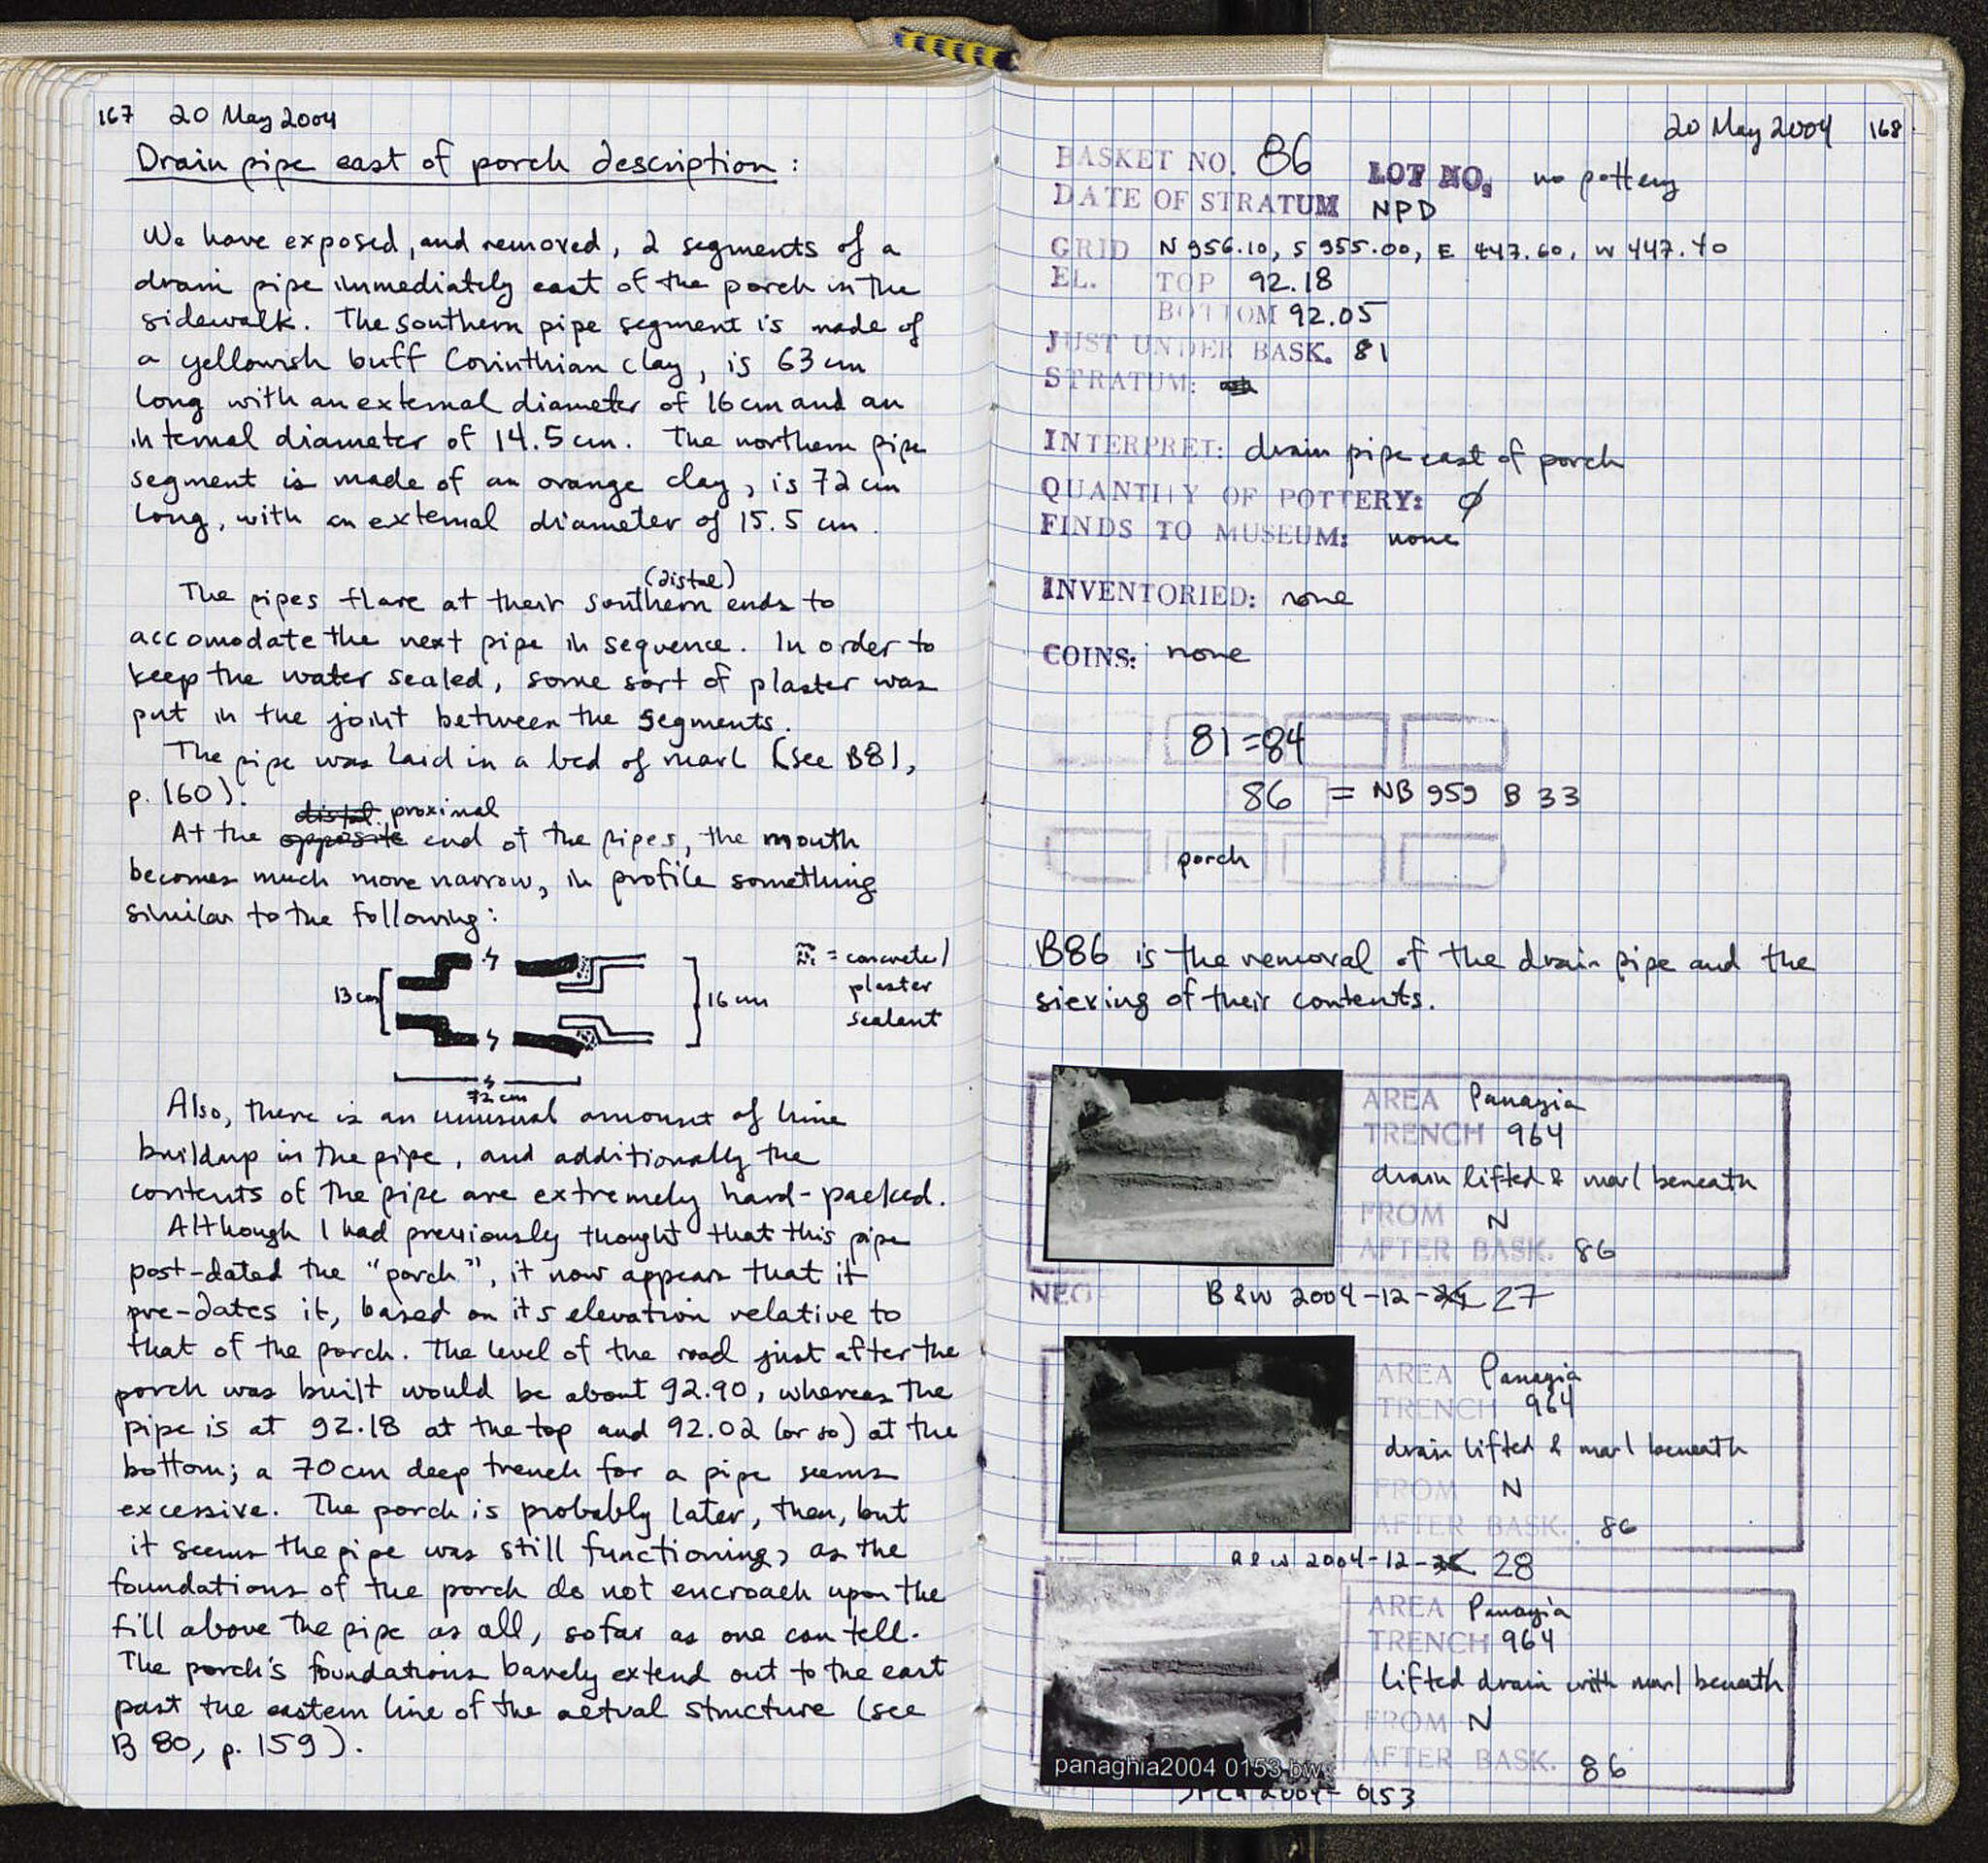 167 20 May 2004
Drain pipe east of porch description:
We have exposed, and removed, 2 segments of a
drain pipe immediately east of the porch in the
sidewalk. The southern pipe segment is made of
a yellowish buff Corinthian clay, is 63 cm
long with an external diameter of 16 cm and an
internal diameter of 14.5 cm. The northern pipe
segment is made of an orange clay, is 72 cm
long, with an external diameter of 15.5 cm.
(distal)
The pipes flare at their southern ends to
accomodate the next pipe in sequence. In order to
keep the water sealed, some sort of plaster was
put in the joint between the segments.
The pipe was laid in a bed of marl (see B81,
p. 160).
distal proximal
At the opposite end of the pipes, the mouth
becomes much more narrow, in profile something
similar to the following:
13 cm
16 cm
= concrete/
plaster
sealant
72 cm
Also, there is an unusual amount of lime
buildup in the pipe, and additionally the
contents of the pipe are extremely hard-packed.
Although I had previously thought that this pipe
post-dated the "porch", it now appears that it
pre-dates it, based on its elevation relative to
that of the porch. The level of the road just after the
porch was built would be about 92.90, whereas the
pipe is at 92.18 at the top and 92.02 (or so) at the
bottom; a 70cm deep trench for a pipe seems
excessive. The porch is probably later, then, but
it seems the pipe was still functioning, as the
foundations of the porch do not encroach upon the
fill above the pipe as all, so far as one can tell.
The porch's foundations barely extend out to the east
past the eastern line of the actual structure (see
B 80, p. 159).
20 May 2004 168
BASKET NO. 86 LOT NO. no pottery
DATE OF STRATUM NPD
GRID N 956.10, S 955.00, E 447.60, W 447.40
EL. TOP 92.18
BOTTOM 92.05
JUST UNDER BASK. 81
STRATUM:
INTERPRET: drain pipe east of porch
QUANTITY OF POTTERY: Ø
FINDS TO MUSEUM: none
INVENTORIED: none
COINS: none
81=84
86 = NB 959 B 33
porch
B86 is the removal of the drain pipe and the
sieving of their contents.
AREA Panagia
TRENCH 964
drain lifted & marl beneath
FROM N
AFTER BASK. 86
NEG B&W 2004-12-27
AREA Panagia
TRENCH 964
drain lifted & marl beneath
FROM N
AFTER BASK. 86
B&W 2004-12-28
AREA Panagia
TRENCH 964
lifted drain with marl beneath
FROM N
AFTER BASK. 86
panaghia2004 0153 bw
2004-0153